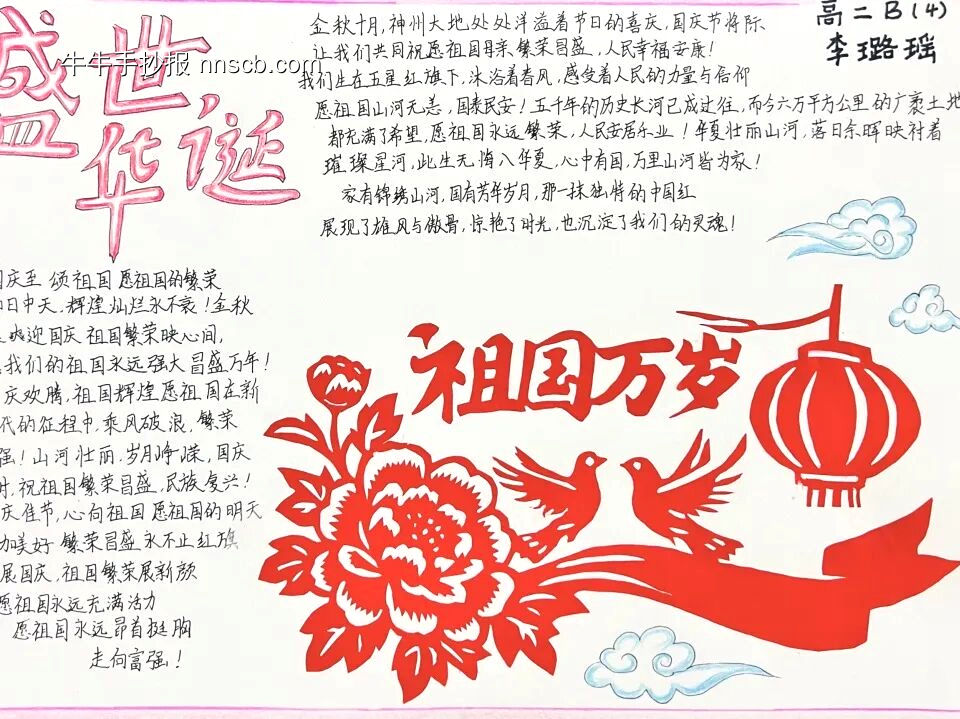 盛世
华诞
牛牛手抄报 nnscb.com
高二B(4)
李璐瑶
金秋十月,神州大地,处处洋溢着节日的喜庆,国庆节将际
让我们共同祝愿祖国母亲,繁荣昌盛,人民幸福安康!
我们生在五星红旗下,沐浴着春风,感受着人民的力量与信仰
愿祖国山河无恙,国泰民安!五千年的历史长河已成过往,而今六万平方公里的广袤土地
都充满了希望,愿祖国永远繁荣,人民安居乐业!华夏壮丽山河,落日余晖映衬着
璀璨星河,此生无悔入华夏,心中有国,万里山河皆为家!
家有锦绣山河,国有芳华岁月,那一抹独特的中国红
展现了雄风与傲骨,惊艳了时光,也沉淀了我们的灵魂!
国庆至 颂祖国 愿祖国的繁荣
如日中天,辉煌灿烂永不衰!金秋
迎国庆 祖国繁荣映心间,
我们的祖国永远强大昌盛万年!
庆欢腾,祖国辉煌愿祖国在新
代的征程中,乘风破浪,繁荣
强!山河壮丽,岁月峥嵘,国庆
时,祝祖国繁荣昌盛,民族复兴!
庆佳节,心向祖国 愿祖国的明天
加美好 繁荣昌盛永不止红旗
展国庆,祖国繁荣展新颜
愿祖国永远充满活力
愿祖国永远昂首挺胸
走向富强!
祖国万岁